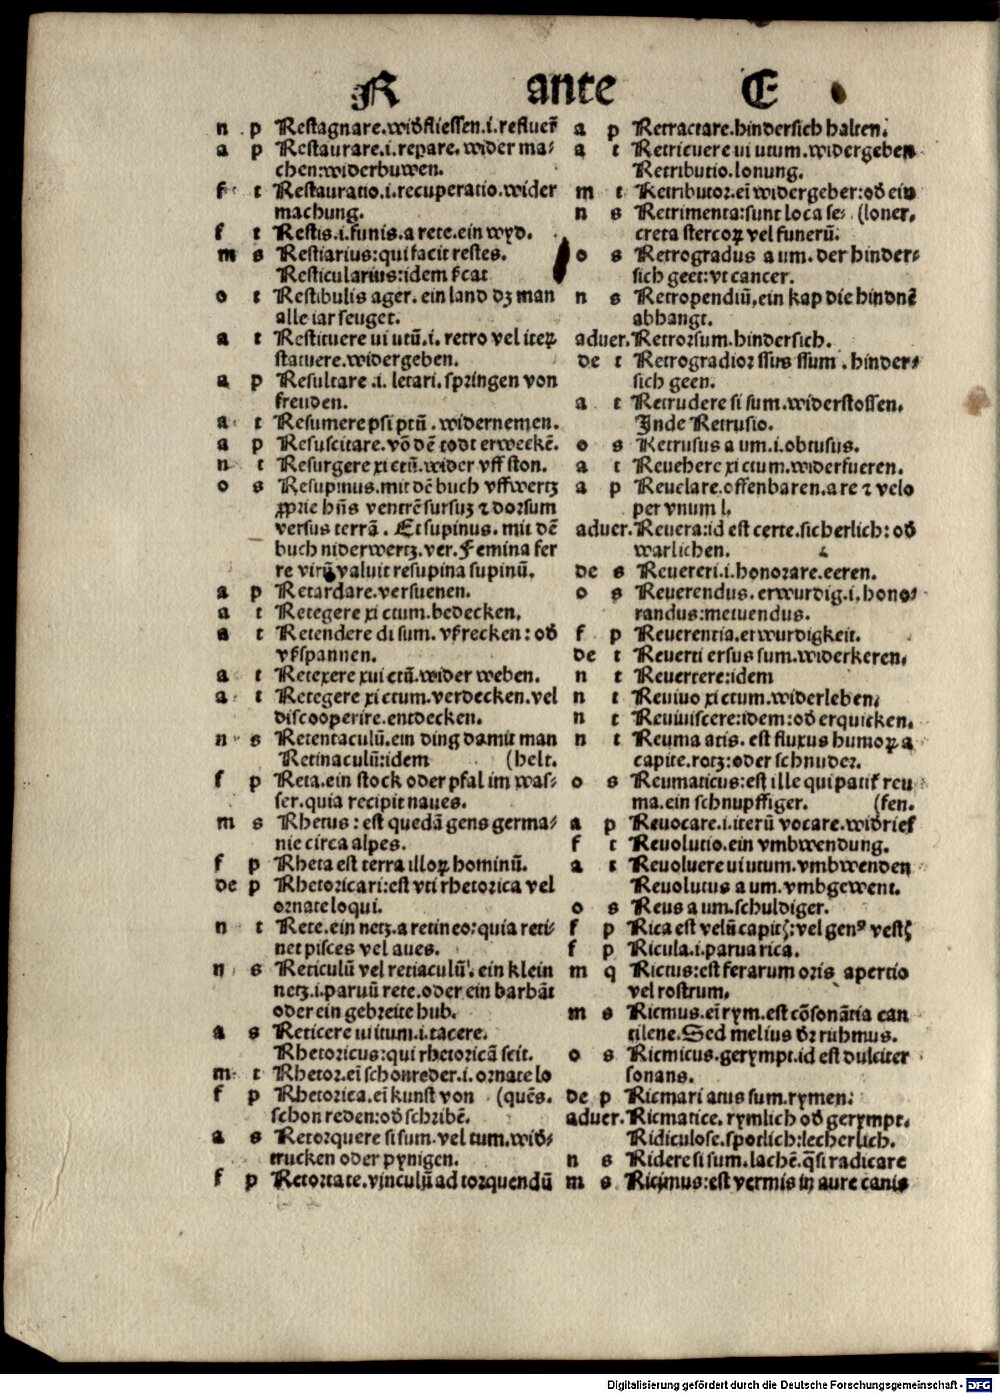 R ante E
n p Restagnare.widfliessen.i.refluer̄
a p Restaurare.i.repare.wider ma⸗
chen:widerbuwen.
f t Restauratio.i.recuperatio.wider
machung.
f t Restis.i.funis.a rete.ein wyd.
m s Restiarius:qui facit restes.
Resticularius:idem
o t Restibilis ager.ein land dz man
alle iar seuget.
a t Restituere ui utū.i.retro vel iteꝝ
statuere.widergeben.
a p Resultare.i.letari.springen von
freuden.
a t Resumere psi ptū.widernemen.
a p Resuscitare.vō dē todt erweckē.
n t Resurgere xi ctū.wider vff ston.
o s Resupinus.mit dē buch vffwertz
ꝓprie hn̄s ventrē sursuꝫ ⁊ dorsum
versus terrā. Et supinus. mit dē
buch niderwertz.ver.Femina fer
re virū valuit resupina supinū.
a p Retardare.versuenen.
a t Retegere xi ctum.bedecken.
a t Retendere di sum. vſtrecken: od
vſspannen.
a t Retexere xui ctū.wider weben.
a t Retegere xi ctum.verdecken.vel
discooperire.entdecken.
n s Retentaculū.ein ding damit man
Retinaculū:idem (helt.
f p Reta.ein stock oder pfal im was⸗
ser.quia recipit naues.
m s Rhetus: est quedā gens germa⸗
nie circa alpes.
f p Rheta est terra illoꝝ hominū.
de p Rhetoricari:est vti rhetorica vel
ornate loqui.
n t Rete.ein netz.a retineo:quia reti⸗
net pisces vel aues.
n s Reticulū vel retiaculū. ein klein
netz.i.paruū rete.oder ein barbāt
oder ein gebreite hub.
a s Reticere ui itum.i.tacere.
Rhetoricus:qui rhetoricā scit.
m t Rhetor.eī schonreder.i.ornate lo
f p Rhetorica.eī kunst von (quēs.
schon reden:od schribē.
a s Retorquere si sum.vel tum.wid⸗
trucken oder pynigen.
f p Retortate.vinculū ad torquendū
a p Retractare.hindersich halten.
a t Retribuere ui utum.widergeben
Retributio.lonung.
m t Retributor.eī widergeber:od ein
n s Retrimenta:sunt loca se⸗ (loner.
creta stercoꝝ vel funerū.
o s Retrogradus a um. der hinder⸗
sich geet:vt cancer.
n s Retropendiū.ein kap die hindnē
abhangt.
aduer.Retrorsum.hindersich.
de t Retrogradior ssus ssum.hinder⸗
sich geen.
a t Retrudere si sum.widerstossen.
Inde Retrusio.
o s Retrusus a um.i.obtusus.
a t Reuehere xi ctum.widerfueren.
a p Reuelare.offenbaren.a re ⁊ velo
per vnum l.
aduer.Reuera:id est certe.sicherlich: od
warlichen.
de s Reuereri.i.honorare.eeren.
o s Reuerendus.erwurdig.i.hono⸗
randus:metuendus.
f p Reuerentia.erwurdigkeit.
de t Reuerti ersus sum.widerkeren.
n t Reuertere:idem
n t Reuiuo xi ctum.widerleben.
n t Reuiuiscere:idem:od erquicken.
n t Reuma atis. est fluxus humoꝝ a
capite.rotz:oder schnuder.
o s Reumaticus:est ille qui patit reu
ma.ein schnupffiger. (fen.
a p Reuocare.i.iterū vocare.widrief
f t Reuolutio.ein vmbwendung.
a t Reuoluere ui utum.vmbwenden
Reuolutus a um.vmbgewent.
o s Reus a um.schuldiger.
f p Rica est velū capit:vel genꝰ vest
f p Ricula.i.parua rica.
m q Rictus:est ferarum oris apertio
vel rostrum.
m s Ricmus.eī rym.est cōsonātia can
tilene.Sed melius dr̄ rithmus.
o s Ricmicus.gerympt.id est dulciter
sonans.
de p Ricmari atus sum.rymen.
aduer.Ricmatice.rymlich od gerympt.
Ridiculose.spotlich:lecherlich.
n s Ridere si sum.lachē.q̄si radicare
m s Ricinus:est vermis in aure canis
Digitalisierung gefördert durch die Deutsche Forschungsgemeinschaft - DFG